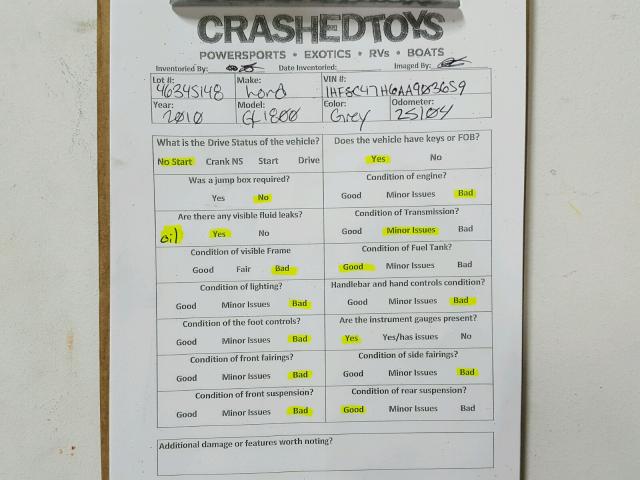 CRASHEDTOYS
POWERSPORTS • EXOTICS • RVs • BOATS
Inventoried By: Date Inventoried: Imaged By:
Lot #: Make: VIN #:
46345148 hond 1HFSC47H6AA903659
Year: Model: Color: Odometer:
2010 GL1800 Grey 25104
What is the Drive Status of the vehicle? Does the vehicle have keys or FOB?
No Start Crank NS Start Drive Yes No
Was a jump box required? Condition of engine?
Yes No Good Minor Issues Bad
Are there any visible fluid leaks? Condition of Transmission?
oil Yes No Good Minor Issues Bad
Condition of visible Frame Condition of Fuel Tank?
Good Fair Bad Good Minor Issues Bad
Condition of lighting? Handlebar and hand controls condition?
Good Minor Issues Bad Good Minor Issues Bad
Condition of the foot controls? Are the instrument gauges present?
Good Minor Issues Bad Yes Yes/has issues No
Condition of front fairings? Condition of side fairings?
Good Minor Issues Bad Good Minor Issues Bad
Condition of front suspension? Condition of rear suspension?
Good Minor Issues Bad Good Minor Issues Bad
Additional damage or features worth noting?